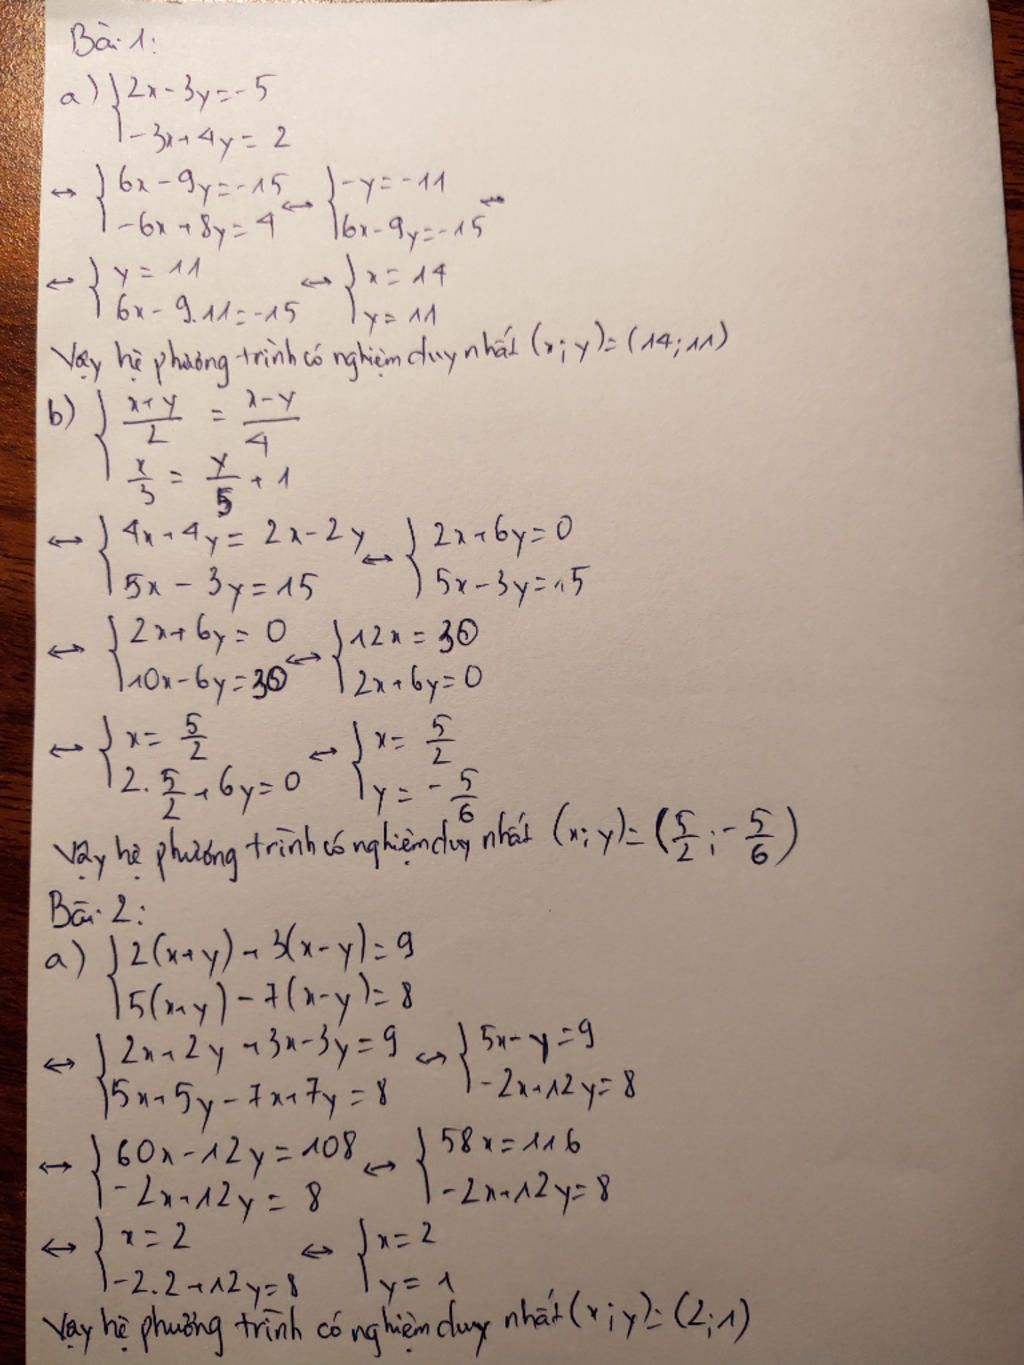 Bài 1:
a) { 2x - 3y = -5
-3x + 4y = 2
↔ { 6x - 9y = -15 ↔ { -y = -11 ↔
-6x + 8y = 4 6x - 9y = -15
↔ { y = 11 ↔ { x = 14
6x - 9.11 = -15 y = 11
Vậy hệ phương trình có nghiệm duy nhất (x; y) = (14; 11)
b) { (x+y)/2 = (x-y)/4
x/3 = y/5 + 1
↔ { 4x + 4y = 2x - 2y ↔ { 2x + 6y = 0
5x - 3y = 15 5x - 3y = 15
↔ { 2x + 6y = 0 ↔ { 12x = 30
10x - 6y = 30 2x + 6y = 0
↔ { x = 5/2 ↔ { x = 5/2
2. 5/2 + 6y = 0 y = -5/6
Vậy hệ phương trình có nghiệm duy nhất (x; y) = (5/2; -5/6)
Bài 2:
a) { 2(x+y) + 3(x-y) = 9
5(x+y) - 7(x-y) = 8
↔ { 2x + 2y + 3x - 3y = 9 ↔ { 5x - y = 9
5x + 5y - 7x + 7y = 8 -2x + 12y = 8
↔ { 60x - 12y = 108 ↔ { 58x = 116
-2x + 12y = 8 -2x + 12y = 8
↔ { x = 2 ↔ { x = 2
-2.2 + 12y = 8 y = 1
Vậy hệ phương trình có nghiệm duy nhất (x; y) = (2; 1)